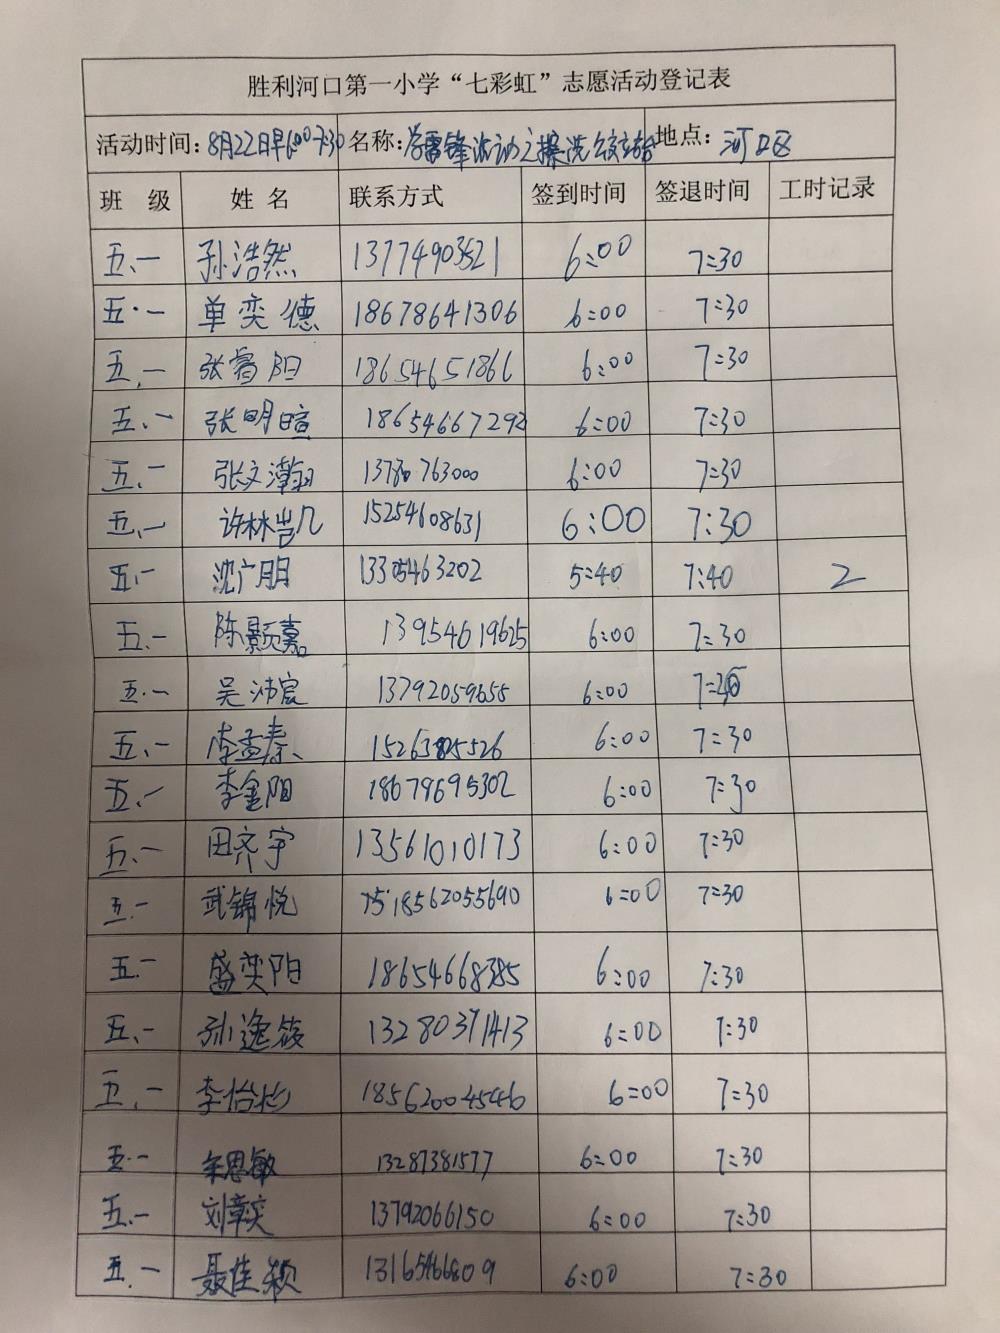 胜利河口第一小学“七彩虹”志愿活动登记表
活动时间：8月22日早6:00 7:30 名称：学雷锋活动之擦洗公交站台 地点：河口区
班 级 姓 名 联系方式 签到时间 签退时间 工时记录
五、一 孙浩然 13774903521 6:00 7:30
五·一 单奕德 18678641306 6:00 7:30
五、一 张 阳 18654651866 6:00 7:30
五、一 张明暄 18654667292 6:00 7:30
五、一 张文瀚 13780763000 6:00 7:30
五、一 许林岂几 15254608631 6:00 7:30
五、一 沈广朋 13305463202 5:40 7:40 2
五、一 陈颢嘉 13954619625 6:00 7:30
五·一 吴沛宸 13792059655 6:00
五、一 李孟秦 15263825526 6:00 7:30
五、一 李金阳 18678695302 6:00 7:30
五、一 田齐宇 13561010173 6:00 7:30
五·一 武锦悦 18562055690 6:00 7:30
五、一 盛奕阳 18654668385 6:00 7:30
五、一 孙逸筱 13280371413 6:00 7:30
五、一 李怡杉 18562004546 6:00 7:30
五·一 思敏 13287381577 6:00 7:30
五、一 刘章奕 13792066150 6:00 7:30
五、一 聂佳颖 13165466809 6:00 7:30